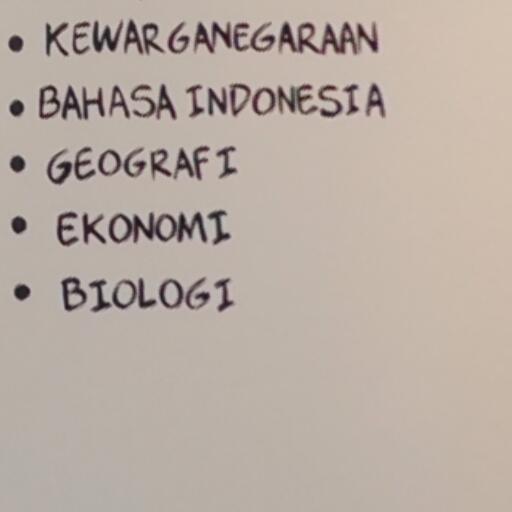 • KEWARGANEGARAAN
• BAHASA INDONESIA
• GEOGRAFI
• EKONOMI
• BIOLOGI